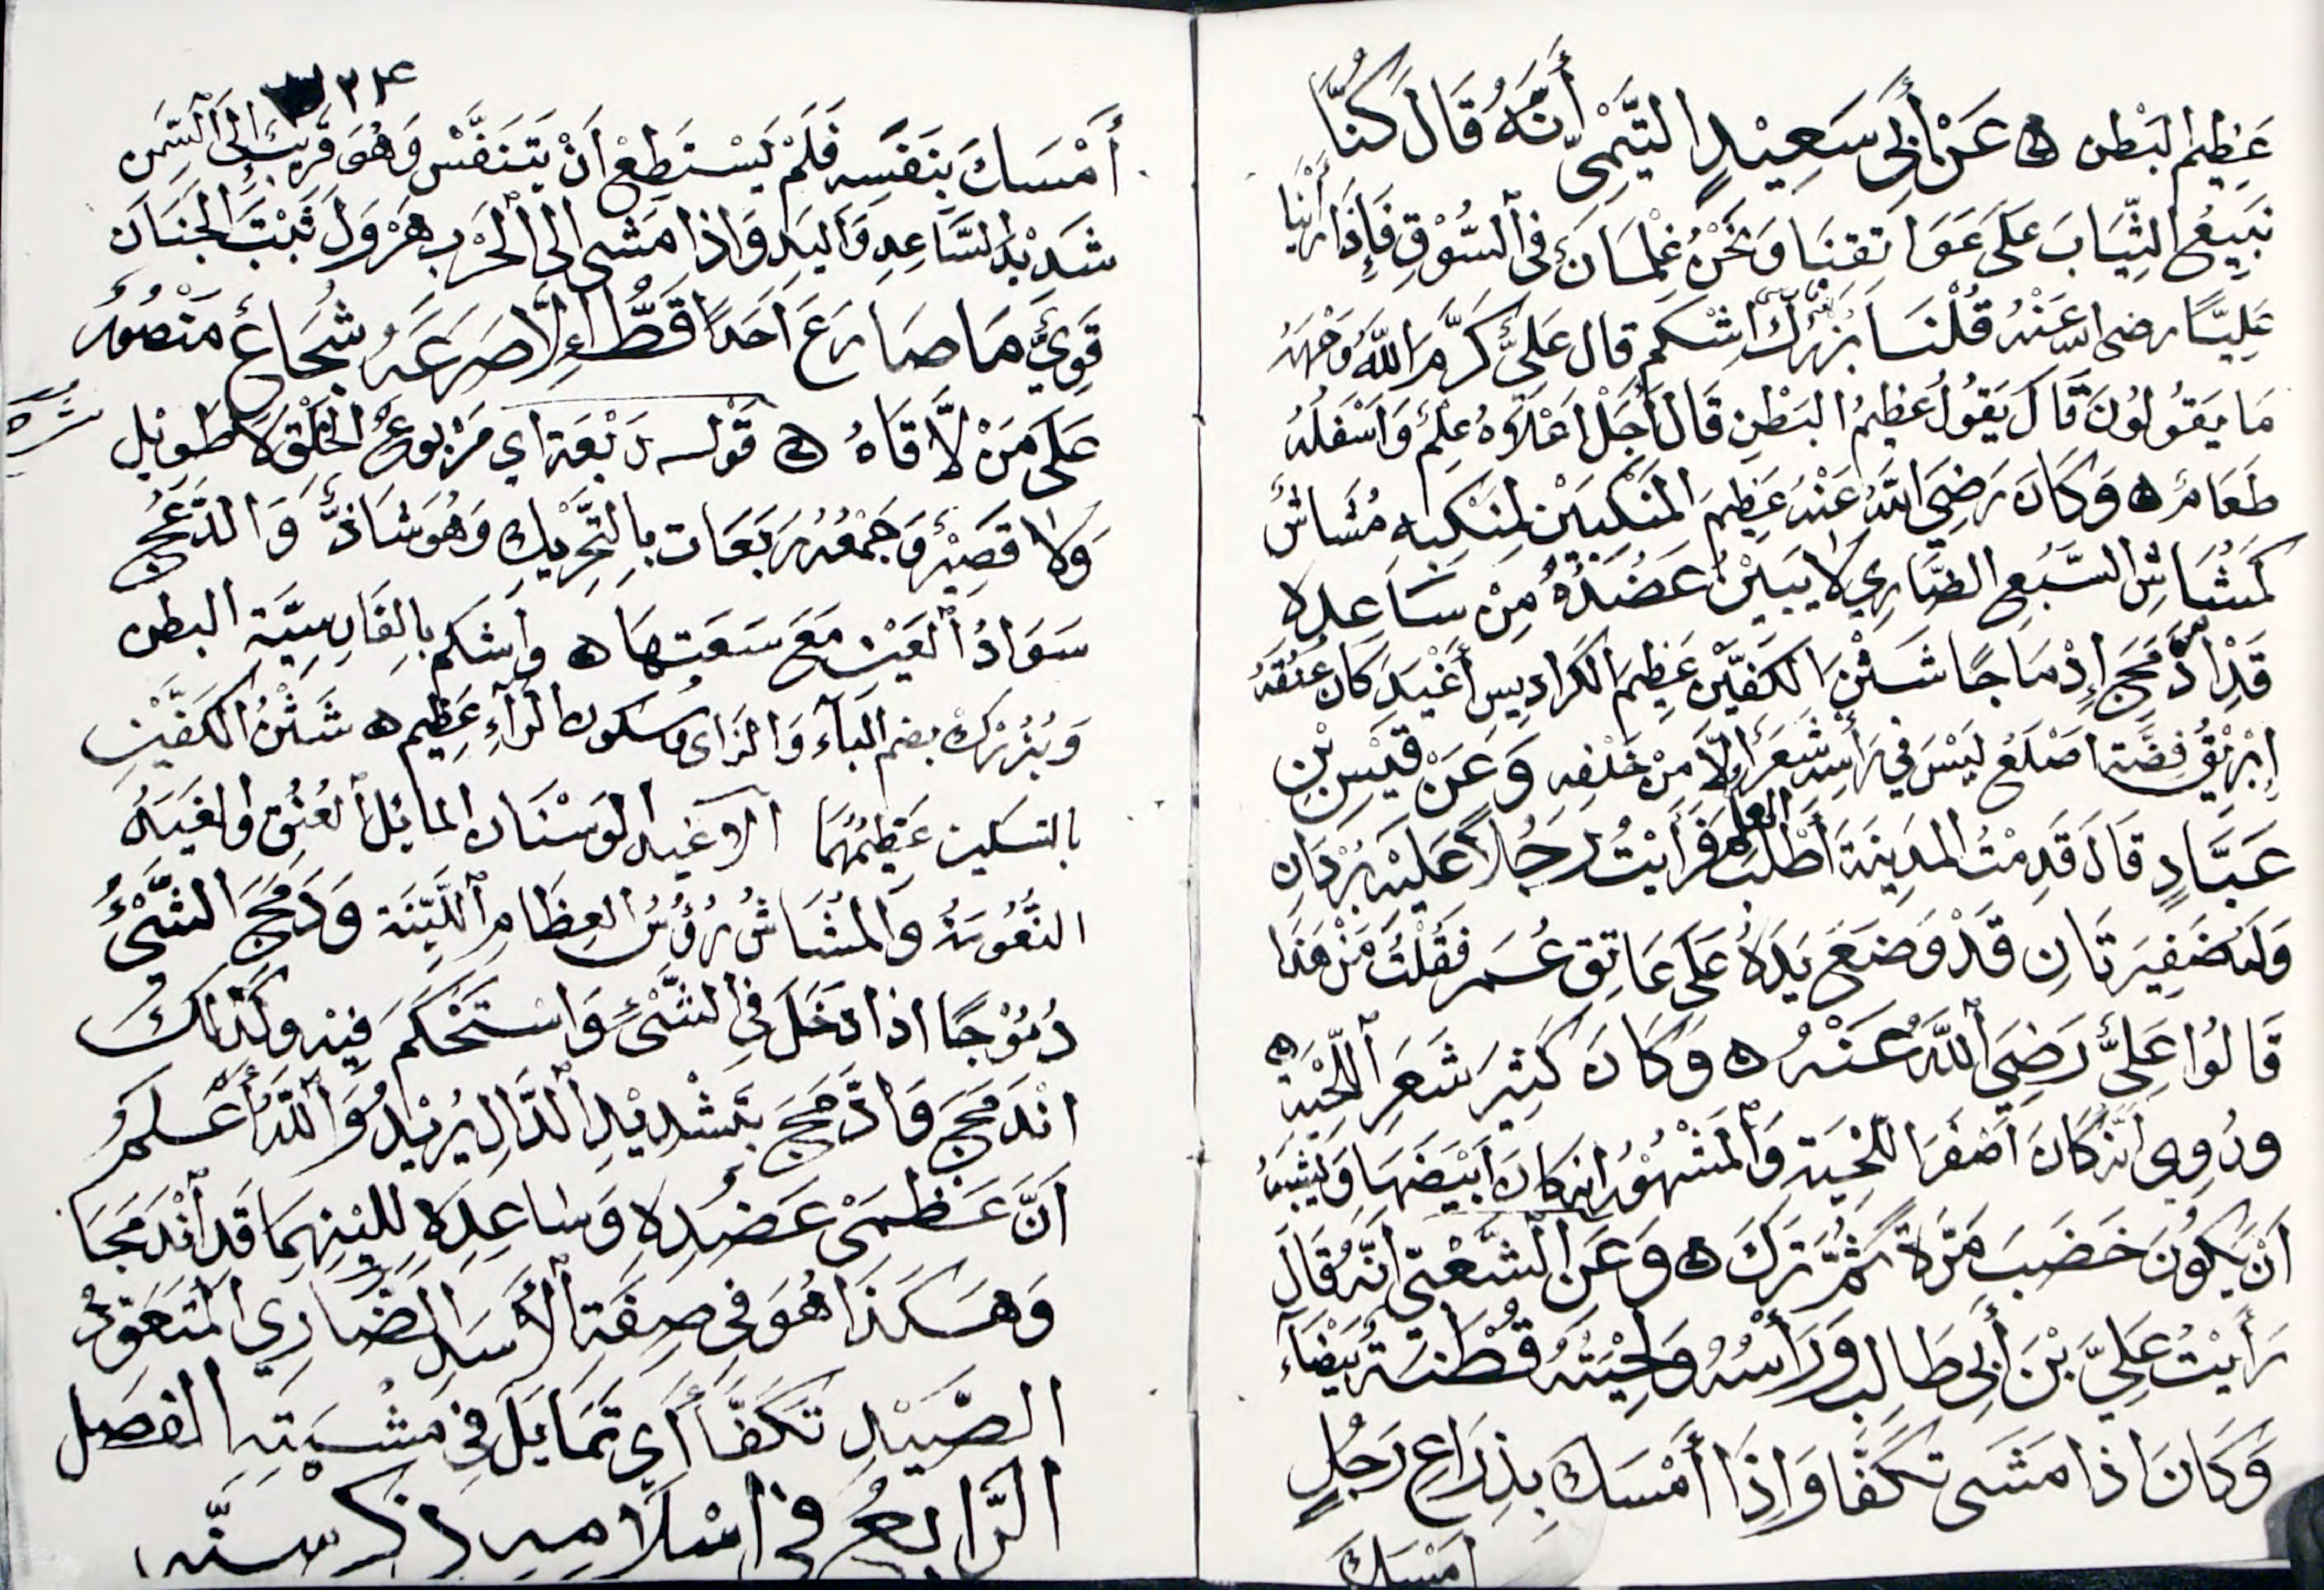 عَظِيم البَطن ه عَنْ أَبِي سَعِيْدٍ التَّيْمِيِّ أَنَّهُ قَالَ كُنَّا
نَبِيعُ الثِّيَابَ عَلَى عَوَاتِقنَا وَنَحْنُ غِلْمَانٌ فِي السُّوْقِ فَإِذَا رَأَيْنَا
عَلِيًّا رضى الله عَنْهُ قُلْنَا بُزُرْك اشْكم قال عَلِيٌّ كَرَّمَ اللَّهُ وَجْهَهُ
مَا يَقُولُونَ قَالَ يَقُولُ عَظِيمُ البَطْنِ قَالَ أَجَلْ أَعْلَاهُ عِلْمٌ وَأَسْفَلُهُ
طَعَامٌ ه وَكَانَ رَضِيَ اللَّهُ عَنْهُ عَظِيمَ المَنْكِبَيْنِ لِمَنْكِبِهِ مُشَاشٌ
كَمُشَاشِ السَّبُعِ الضَّارِي لَا يَبِيْنُ عَضُدُهُ مِنْ سَاعِدِهِ
قَدْ ادَّمَجَ إِدْمَاجًا شَثْنَ الكَفَّيْنِ عَظِيمَ الكَرَادِيسِ أَغْيَدَ كَانَ عُنُقُهُ
إِبْرِيْقُ فِضَّةٍ اصْلَعُ لَيْسَ فِي رَأْسِهِ شَعَرٌ إِلَّا مِنْ خَلْفِهِ وَعَنْ قَيْسِ بْنِ
عَبَّادٍ قَالَ قَدِمْتُ المَدِينَةَ أَطْلُبُ العلم فَرَأَيْتُ رَجُلاً عَلَيْهِ بُرْدَانِ
وَلَهُ ضَفِيرَتَانِ قَدْ وَضَعَ يَدَهُ عَلَى عَاتِقِ عُمَر فَقُلْتُ مَنْ هَذَا
قَالُوا عَلِيٌّ رَضِيَ اللَّهُ عَنْهُ ه وَكَانَ كَثِيرَ شَعَرِ اللِّحْيَةِ ه
ورُوِي أنَّه كَانَ أَصْفَرَ اللِّحْيَةِ وَالْمَشْهُوْرُ انه كان أَبْيَضَهَا وَيُشْبِهُ
أَنْ يَكُونَ خَضَبَ مَرَّةً ثُمَّ تَرَكَ ه وَعَنِ الشَّعْبِيِّ أَنَّهُ قَالَ
رَأَيْتُ عَلِيَّ بْنَ أَبِي طَالِبٍ وَرَأْسُهُ وَلِحْيَتُهُ قُطْنَةٌ بَيْضَاء
وَكَانَ اذا مَشَى تَكَفَّأَ وَإِذَا أَمْسَكَ بِذِرَاعِ رَجُلٍ
امْسَكَ
٢٣٤
أَمْسَكَ بِنَفَسِهِ فَلَمْ يَسْتَطِعْ أَنْ يَتَنَفَّسَ وَهُوَ قَرِيبٌ إِلَى السِّمَنِ
شَدِيْدُ السَّاعِدِ وَاليَدِ وَاذا مَشى الى الحَرْبِ هَرْوَلَ ثَبْتُ الجَنَانِ
قَوِيٌّ مَا صَارَعَ أَحَدًا قَطُّ إِلَّا صَرَعَهُ شُجَاعٌ مَنْصُورٌ
عَلَى مَنْ لَّاقَاهُ ه قَوْله رَبْعَة اي مَرْبوعُ الخَلْقِ لَا طَوِيْل
وَلا قَصِيْر وَجَمْعُه رَبَعَات بِالتَّحْرِيْكِ وَهُوَ شَاذٌّ وَالدَّعَجُ
سَوَادُ العَيْنِ مَعَ سَعَتِهَا ه وَاشكم بِالفَارِسِيَّةِ البطن
وَبُزُرْكْ بضم البَآءِ وَالزَاى وسكون الرآءِ عَظِيم ه شَثْنُ الكَفَّيْنِ
بالتسكين عَظِيْمُهُمَا الاغيد الوَسْنَان المائل العُنُقِ والغَيَدُ
النُّعُومَةُ وَالمُشَاشُ رُؤُسُ العِظَامِ اللَّيِّنَة وَدَمَجَ الشَّيْءُ
دُمُوْجًا اذا دَخَلَ فِي الشَّيْءِ وَاسْتَحْكَمَ فِيهِ وكَذلكَ
انْدَمَجَ وَادَّمَجَ بِتَشْدِيْدِ الدَّالِ يُرِيْدُ وَاللَّهُ أَعْلَمُ
أَنَّ عَظْمَيْ عَضُدِهِ وَسَاعِدِهِ لِلِيْنِهِمَا قَد انْدَمَجَا
وَهَكَذَا هُوَ فِي صِفَةِ الأَسَدِ الضَّارِي المُتَعَوِّدُ
الصَّيْدِ تَكَفَّأَ أَي تَمَايَلَ فِي مَشْيَتِهِ الفصل
الرَّابعُ في اسْلَامِهِ ذكر سنّه